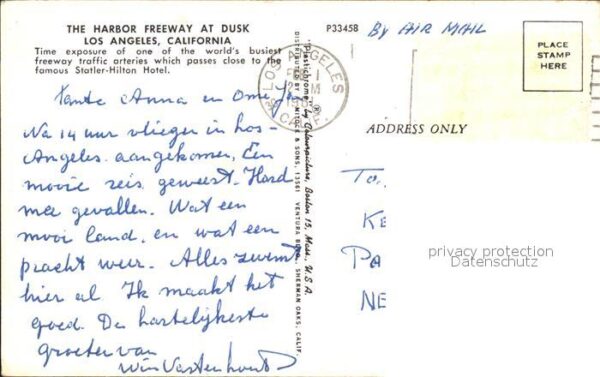 THE HARBOR FREEWAY AT DUSK
LOS ANGELES, CALIFORNIA
Time exposure of one of the world's busiest
freeway traffic arteries which passes close to the
famous Statler-Hilton Hotel.
Tante Anna en Ome Jan
Na 14 uur vliegen in Los-
Angeles aangekomen. Een
mooie reis geweest. Hard
mee gevallen. Wat een
mooi land, en wat een
pracht weer. Alles zwemt
hier al Ik maakt het
goed. De hartelijkste
groeten van
Wim Vastenhoud
P33458
By AIR MAIL
LOS ANGELES
CALIF.
"Plastichrome" by Colourpicture, Boston 15, Mass., U.S.A.
DISTRIBUTED BY MITOCK & SONS, 13561 VENTURA BLVD., SHERMAN OAKS, CALIF.
PLACE
STAMP
HERE
ADDRESS ONLY
To.
KE
PA
NE
privacy protection
Datenschutz